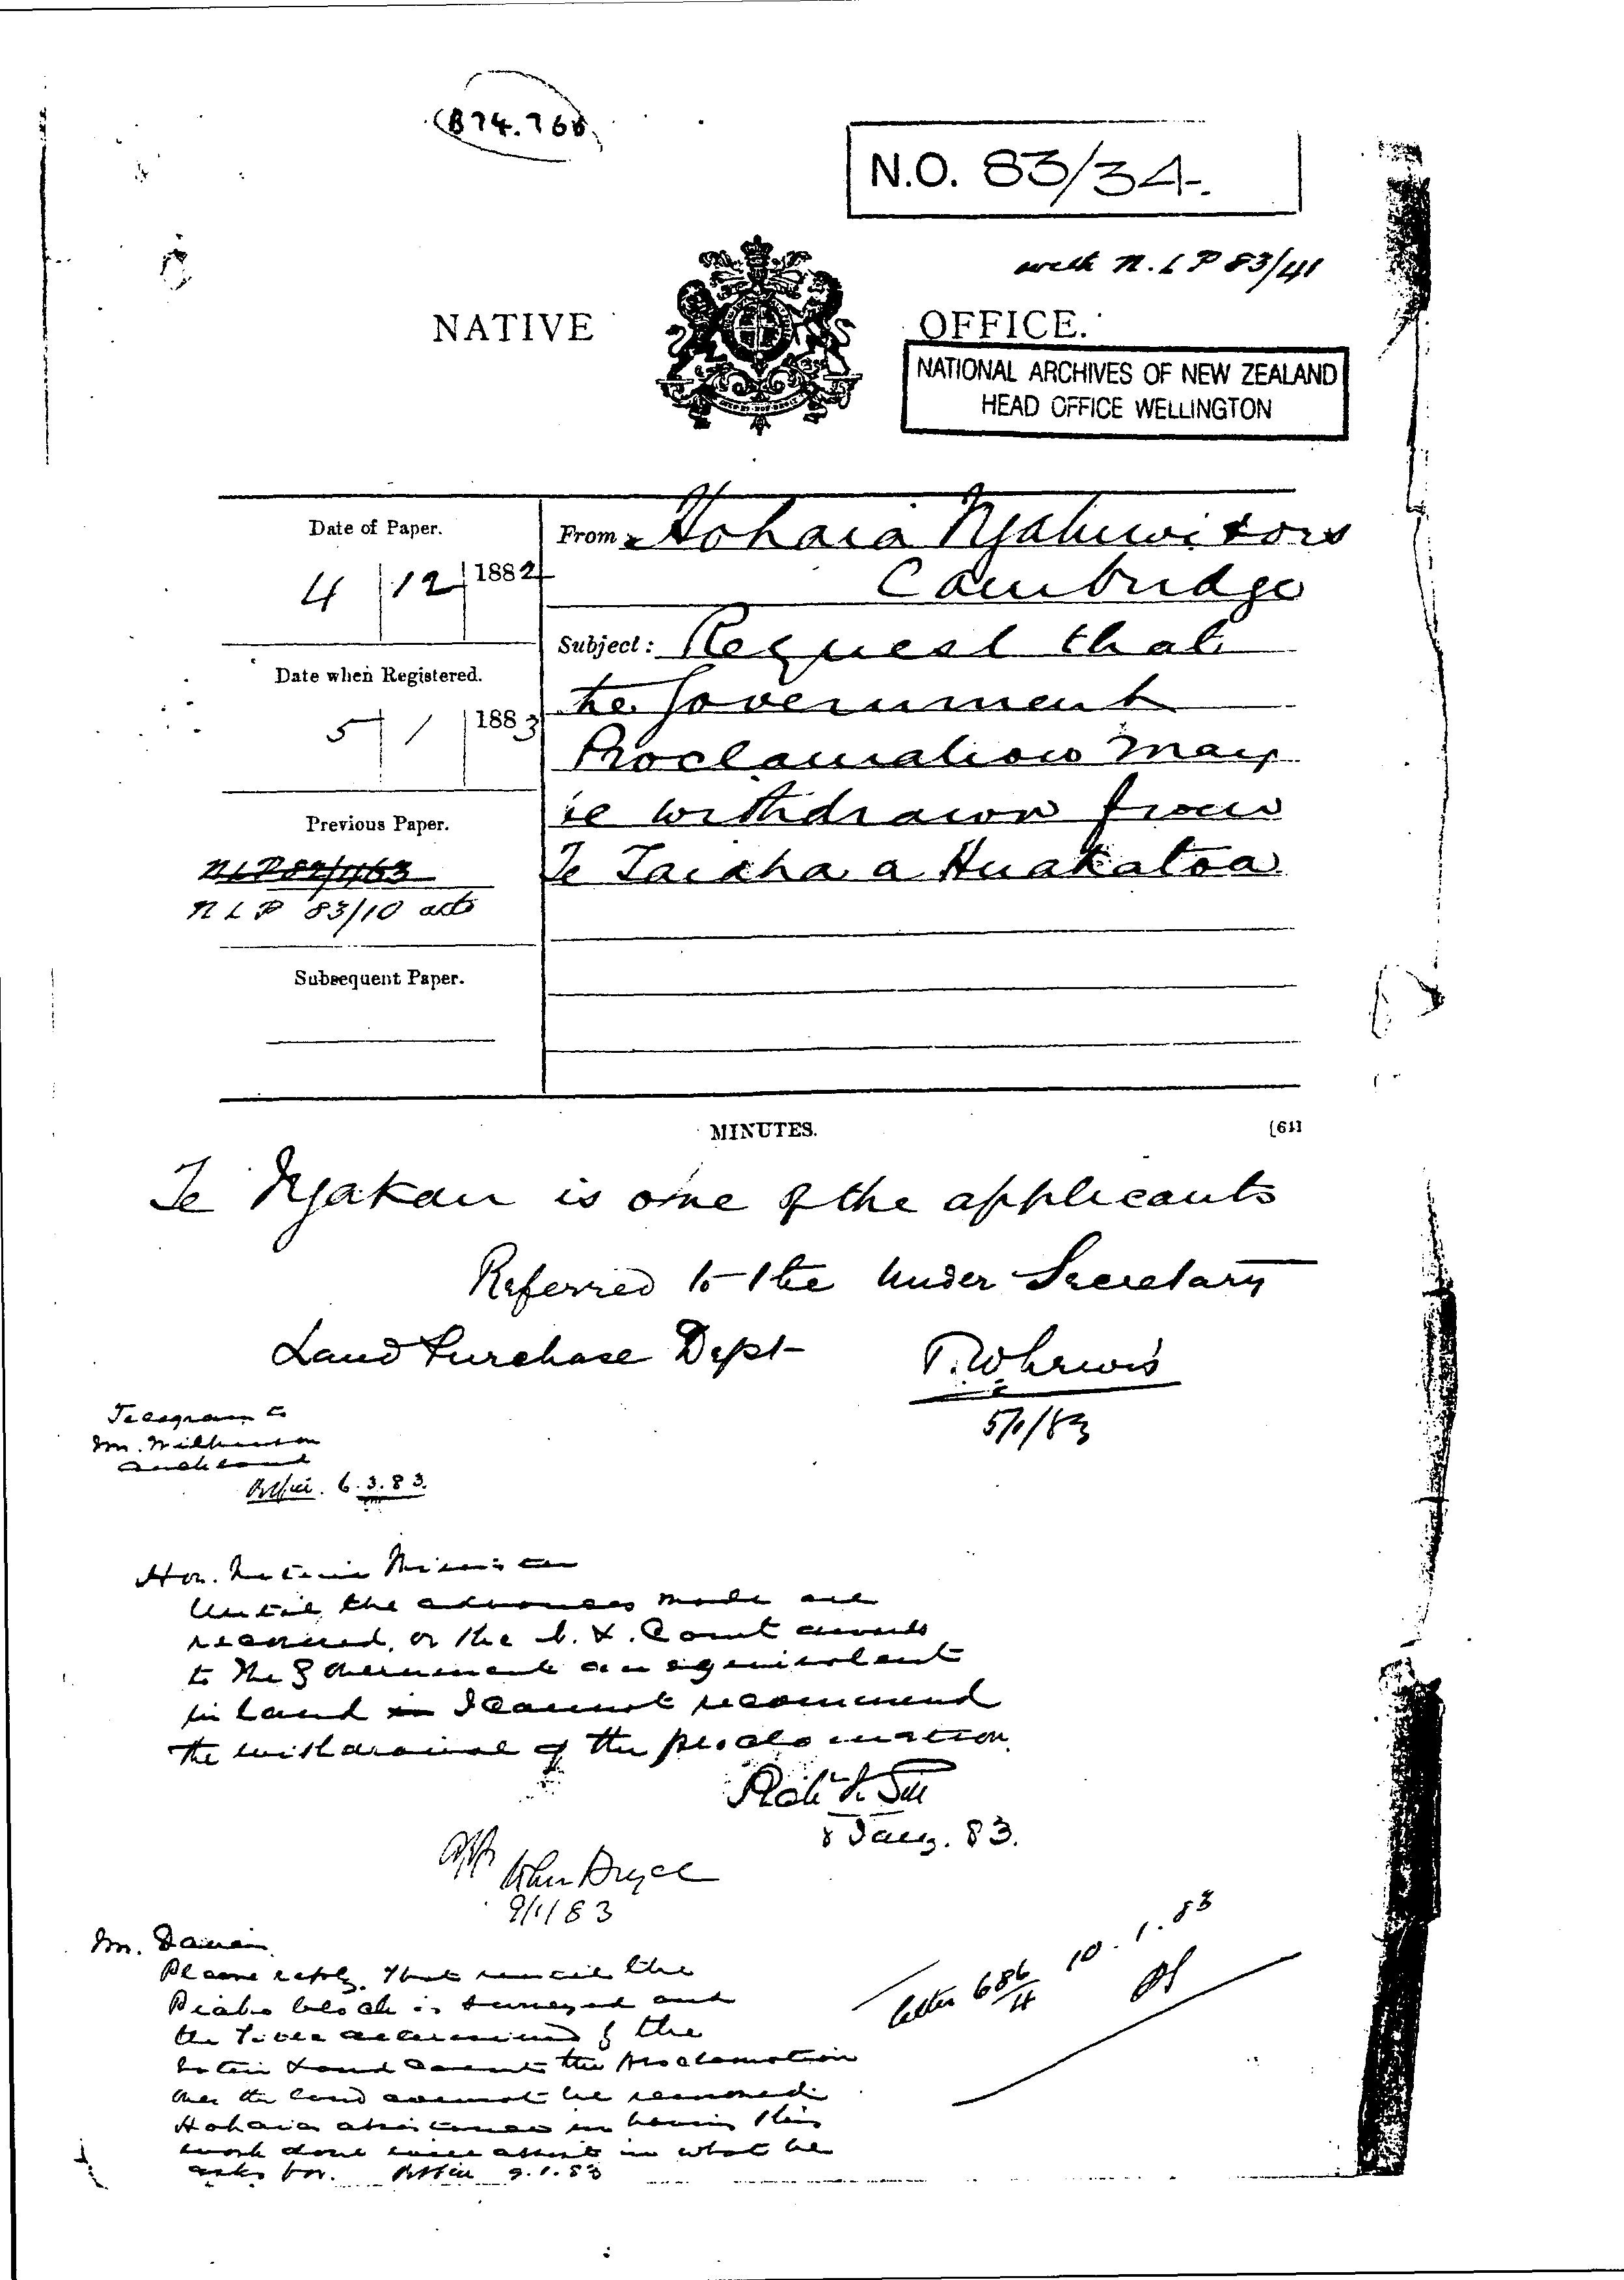 (B74.76b)
N.O. 83/34
with N.L P 83/41
NATIVE OFFICE.
NATIONAL ARCHIVES OF NEW ZEALAND
HEAD OFFICE WELLINGTON
Date of Paper.
4 | 12 | 1882
From Hohaia Ngahiwi & ors
Cambridge
Subject: Request that
the Government
Proclamation may
be withdrawn from
Te Taiaha a Huakatoa
Date when Registered.
5 | 1 | 1883
Previous Paper.
NLP 82/463
N L P 83/10
Subsequent Paper.
MINUTES.
[61]
Te Ngakau is one of the applicants
Referred to the Under Secretary
Land Purchase Dept
T.W Lewis
5/1/83
Telegram to
Mr. Wilkinson
Auckland
6.3.83.
Hon. Native Minister
Until the advances made are
recovered, or the N. L. Court awards
to the Government an equivalent
in Land I cannot recommend
the withdrawal of the proclamation
Rich Jn Gill
8 Jany. 83.
John Bryce
9/1/83
Mr.
Please reply. That until the
Piako block is surveyed and
the of the
Native Land Court the proclamation
over the land cannot be removed.
Hohaia assistance in having this
work done will assist in what he
asks for. 9.1.83
letter 686/4 10.1.83